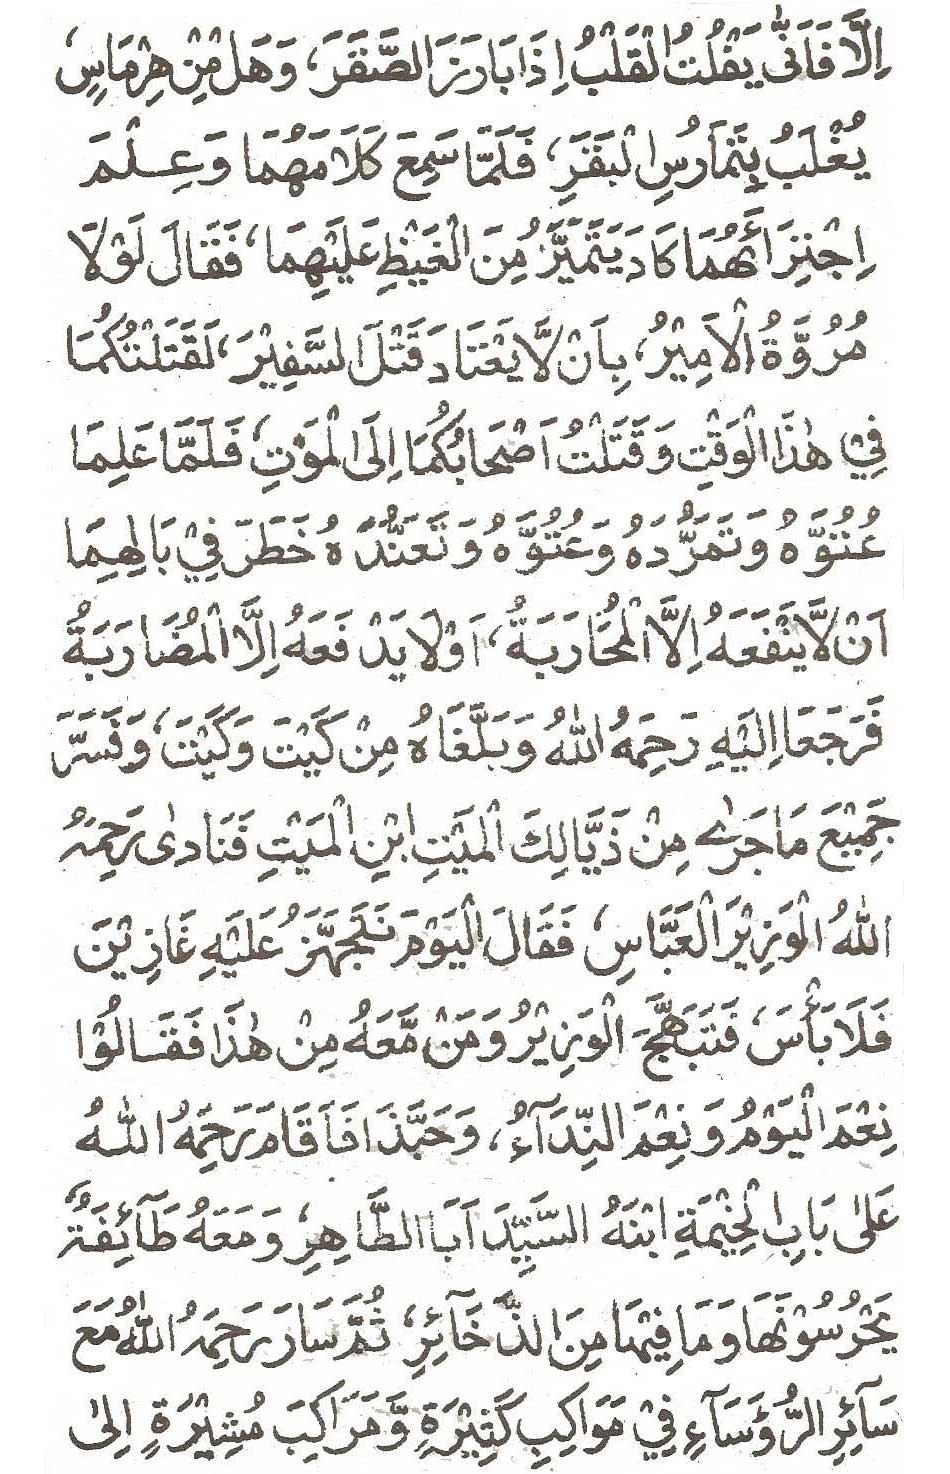 اِلَّا فَاَنّٰى يَفْلُتُ الْقَلْبُ اِذَا بَارَزَ الصَّقَرَ، وَهَلْ مِنْ هِرْمَاسٍ،
يُغْلَبُ بِتَمَارُسِ الْبَقَرِ، فَلَمَّا سَمِعَ كَلَامَهُمَا وَعِلْمَ
اِجْتِزَاَئَهُمَا كَادَ يَتَمَيَّزُ مِنَ الْغَيْظِ عَلَيْهِمَا، فَقَالَ لَوْلَا
مُرُوَّةُ الْاَمِيْرُ، بِاَنْ لَّا يَعْتَادَ قَتْلَ السَّفِيْرَ، لَقَتَلْتُكُمَا
فِيْ هٰذَا الْوَقْتِ وَقَتَلْتُ اَصْحَابُكُمَا اِلَى الْمَوْتِ، فَلَمَّا عَلِمَا
عُتُوَّهُ وَتَمَرُّدَهُ وَعُتُوَّهُ وَتَعَنُّدَهُ خَطَرَ فِيْ بَالِهِمَا
اَنْ لَّا يَنْفَعَهُ اِلَّا الْمُحَارَبَةُ، اَوْلَا يَدْفَعَهُ اِلَّا الْمُضَارَبَةُ
فَرَجَعَا اِلَيْهِ رَحِمَهُ اللهُ وَبَلَّغَاهُ مِنْ كَيْتَ وَكَيْتَ، وَفَسَّرَ
جَمِيْعَ مَا جَرٰے مِنْ ذَيَّالِكَ الْمَيْتِ ابْنِ الْمَيْتِ فَنَادٰى رَحِمَهُ
اللهُ الْوَزِيْرَ الْعَبَّاسِ، فَقَالَ الْيَوْمَ نَتَجَهَّزُ عَلَيْهِ غَازِيْنَ
فَلَا بَأْسَ، فَتَبَهَّجَ الْوَزِيْرُ وَمَنْ مَّعَهُ مِنْ هٰذَا فَقَالُوْا
نِعْمَ الْيَوْمُ وَنِعْمَ النِّدَآءُ، وَحَبَّذَا فَاَقَامَ رَحِمَهُ اللهُ
عَلٰى بَابِ الْخِيْمَةِ ابْنَهُ السَّيِّدَ اَبَا الطَّاهِرِ، وَمَعَهُ طَآئِفَةٌ،
يَحْرُسُوْنَهَا وَمَا فِيْهَا مِنَ الذَّخَآئِرِ، ثُمَّ سَارَ رَحِمَهُ اللهُ مَعَ
سَآئِرِ الرُّؤَسَآءِ فِيْ مَوَاكِبِ كَثِيْرَةٍ وَّمَرَاكِبَ مُشِيْرَةٍ اِلٰى